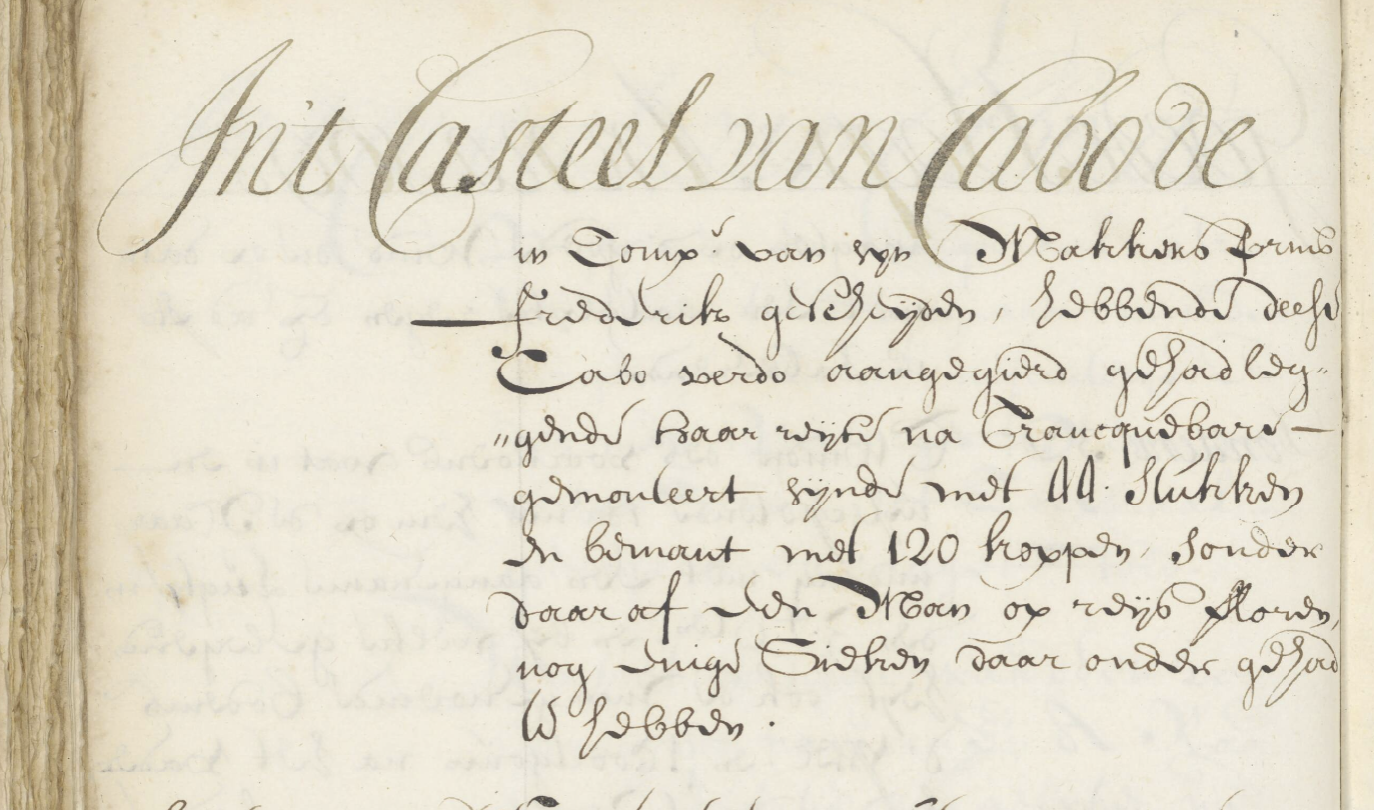 Int Casteel van Cabo de
in Comp: van zyn Makkers Prins
Frederiks gescheijden, hebbende deese
Cabo verdo aangegierd gehad leg-
gende haar reijse na Trancquebare
gemonteert zynde met 44. stukken
en bemant met 120 koppen, sonder
daar af een Man op reijs verloren,
nog eenige Sieken daar onder gehad
te hebben.